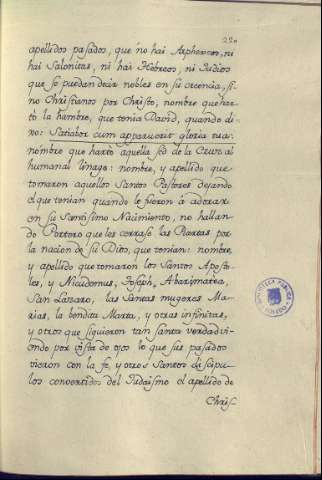 220
apellidos pasados, que no hai Arpherceos, ni
hai Salonitas, ni hai Hebreos, ni Iudios
que se puedan decir nobles en su creencia, si-
no Christianos por Christo, nombre que har-
tó la hambre, que tenia David, quando di-
xo: Satiabor cum apparuerit gloria tua:
nombre que hartó aquella sed de la Cruz al
humanal linage: nombre, y apellido que
tomaron aquellos Santos Pastores dejando
el que tenian quando le fueron á adorar
en su Santisimo Nacimiento, no hallan-
do Portero que les cerrase las Puertas por
la nacion de su Dios, que tenian: nombre,
y apellido que tomaron los Santos Aposto-
les, y Nicudemus, Joseph, Abarimatea,
San Lazaro, las Santas mugeres Ma-
rias, la bendita Marta, y otras infinitas,
y otros que siguieron tan santa verdad vi-
endo por vista de ojos lo que sus pasados
vieron con la fe, y otros Santos discipu-
los convertidos del Iudaismo el apellido de
Chris-
BIBLIOTECA PUBLICA
TOLEDO